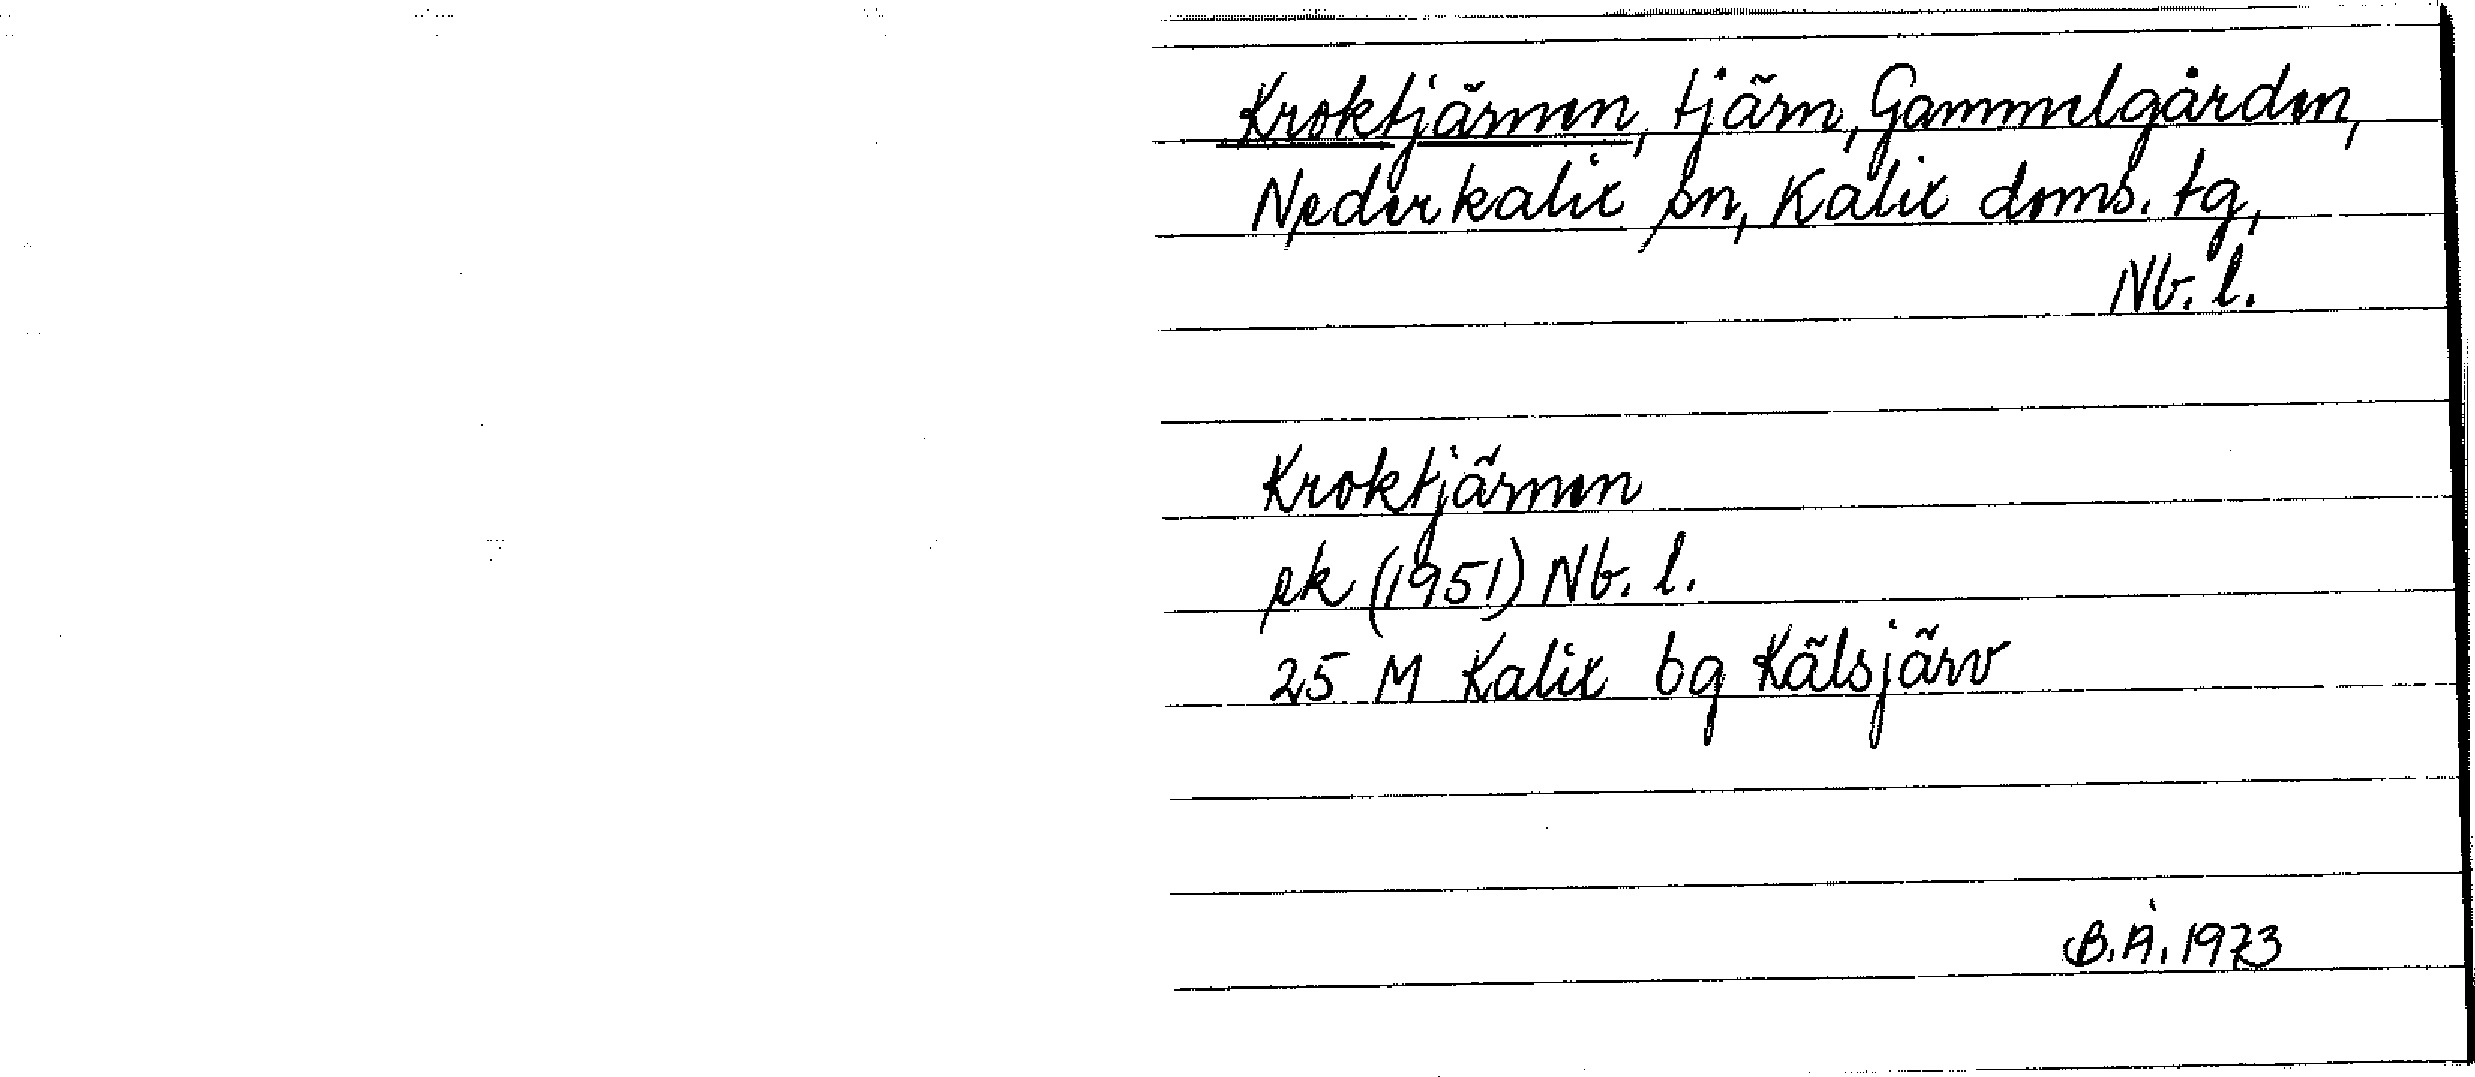 Kroktjärnen, tjärn, Gammelgården,
Nederkalix sn, Kalix doms. tg,
Nb. l.
Kroktjärnen
ek (1951) Nb. l.
25 M Kalix bg Kälsjärv
B.Å. 1973